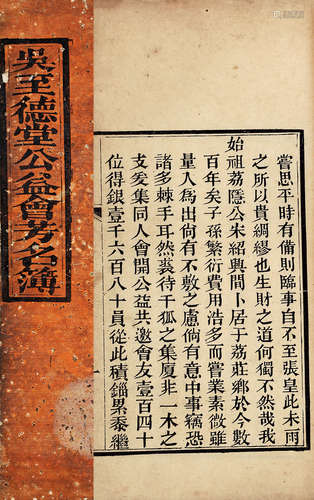 吳至德堂公益會芳名簿
嘗思平時有備則臨事自不至張皇此未雨
之所以貴綢繆也生財之道何獨不然哉我
始祖荔隱公宋紹興間卜居于荔莊鄉於今數
百年矣子孫繁衍費用浩多而嘗業素微雖
量入為出尙有不敷之慮倘有意中事竊恐
諸多棘手耳然裘待千狐之集厦非一木之
支爰集同人會開公益共邀會友壹百四十
位得銀壹千六百八十員從此積錙累泰繼